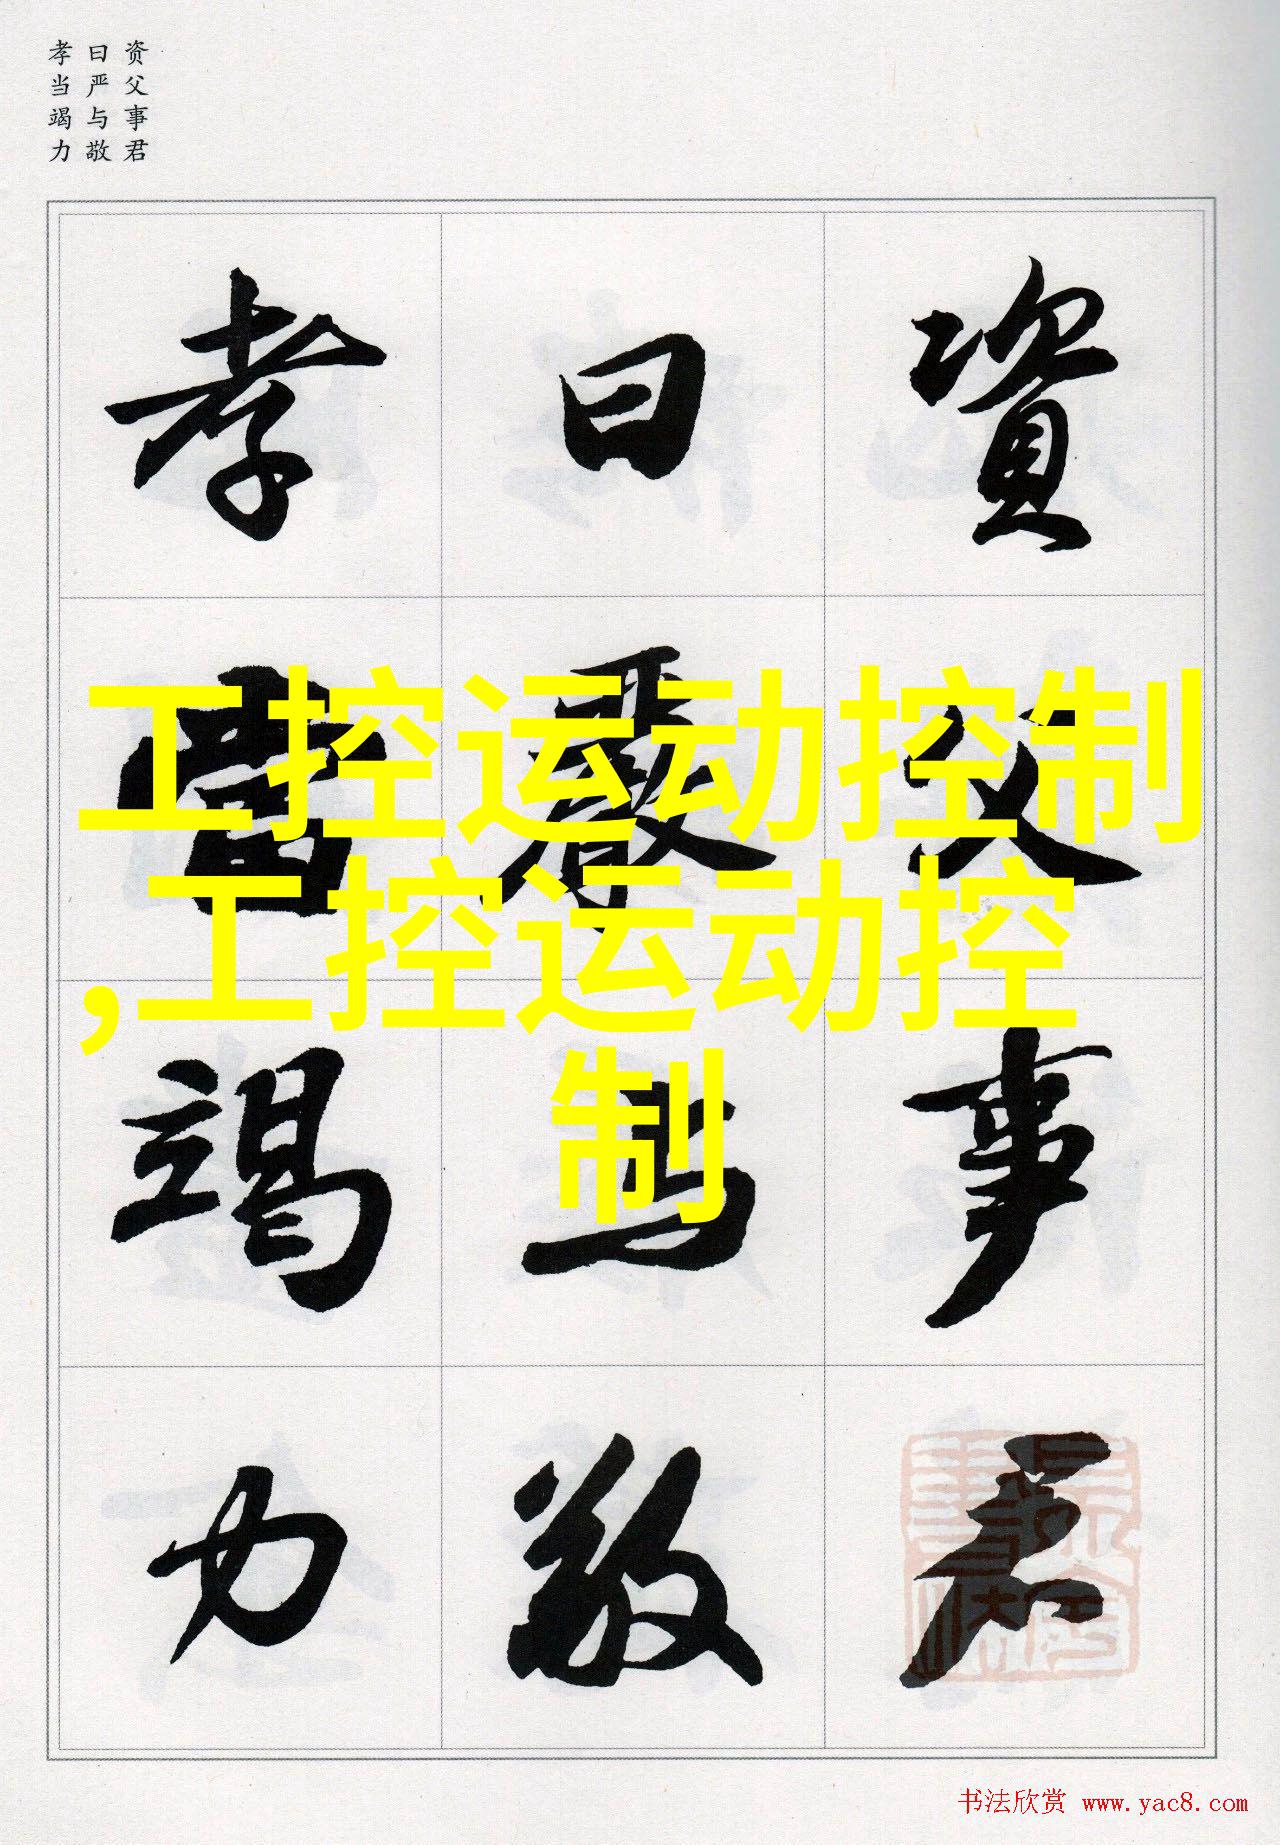 资父事君
曰严与敬
孝当竭力
資父事君
曰嚴与敬
孝當竭力
工控运动控制
,工控运动控
制
书法欣赏 www.yac8.com